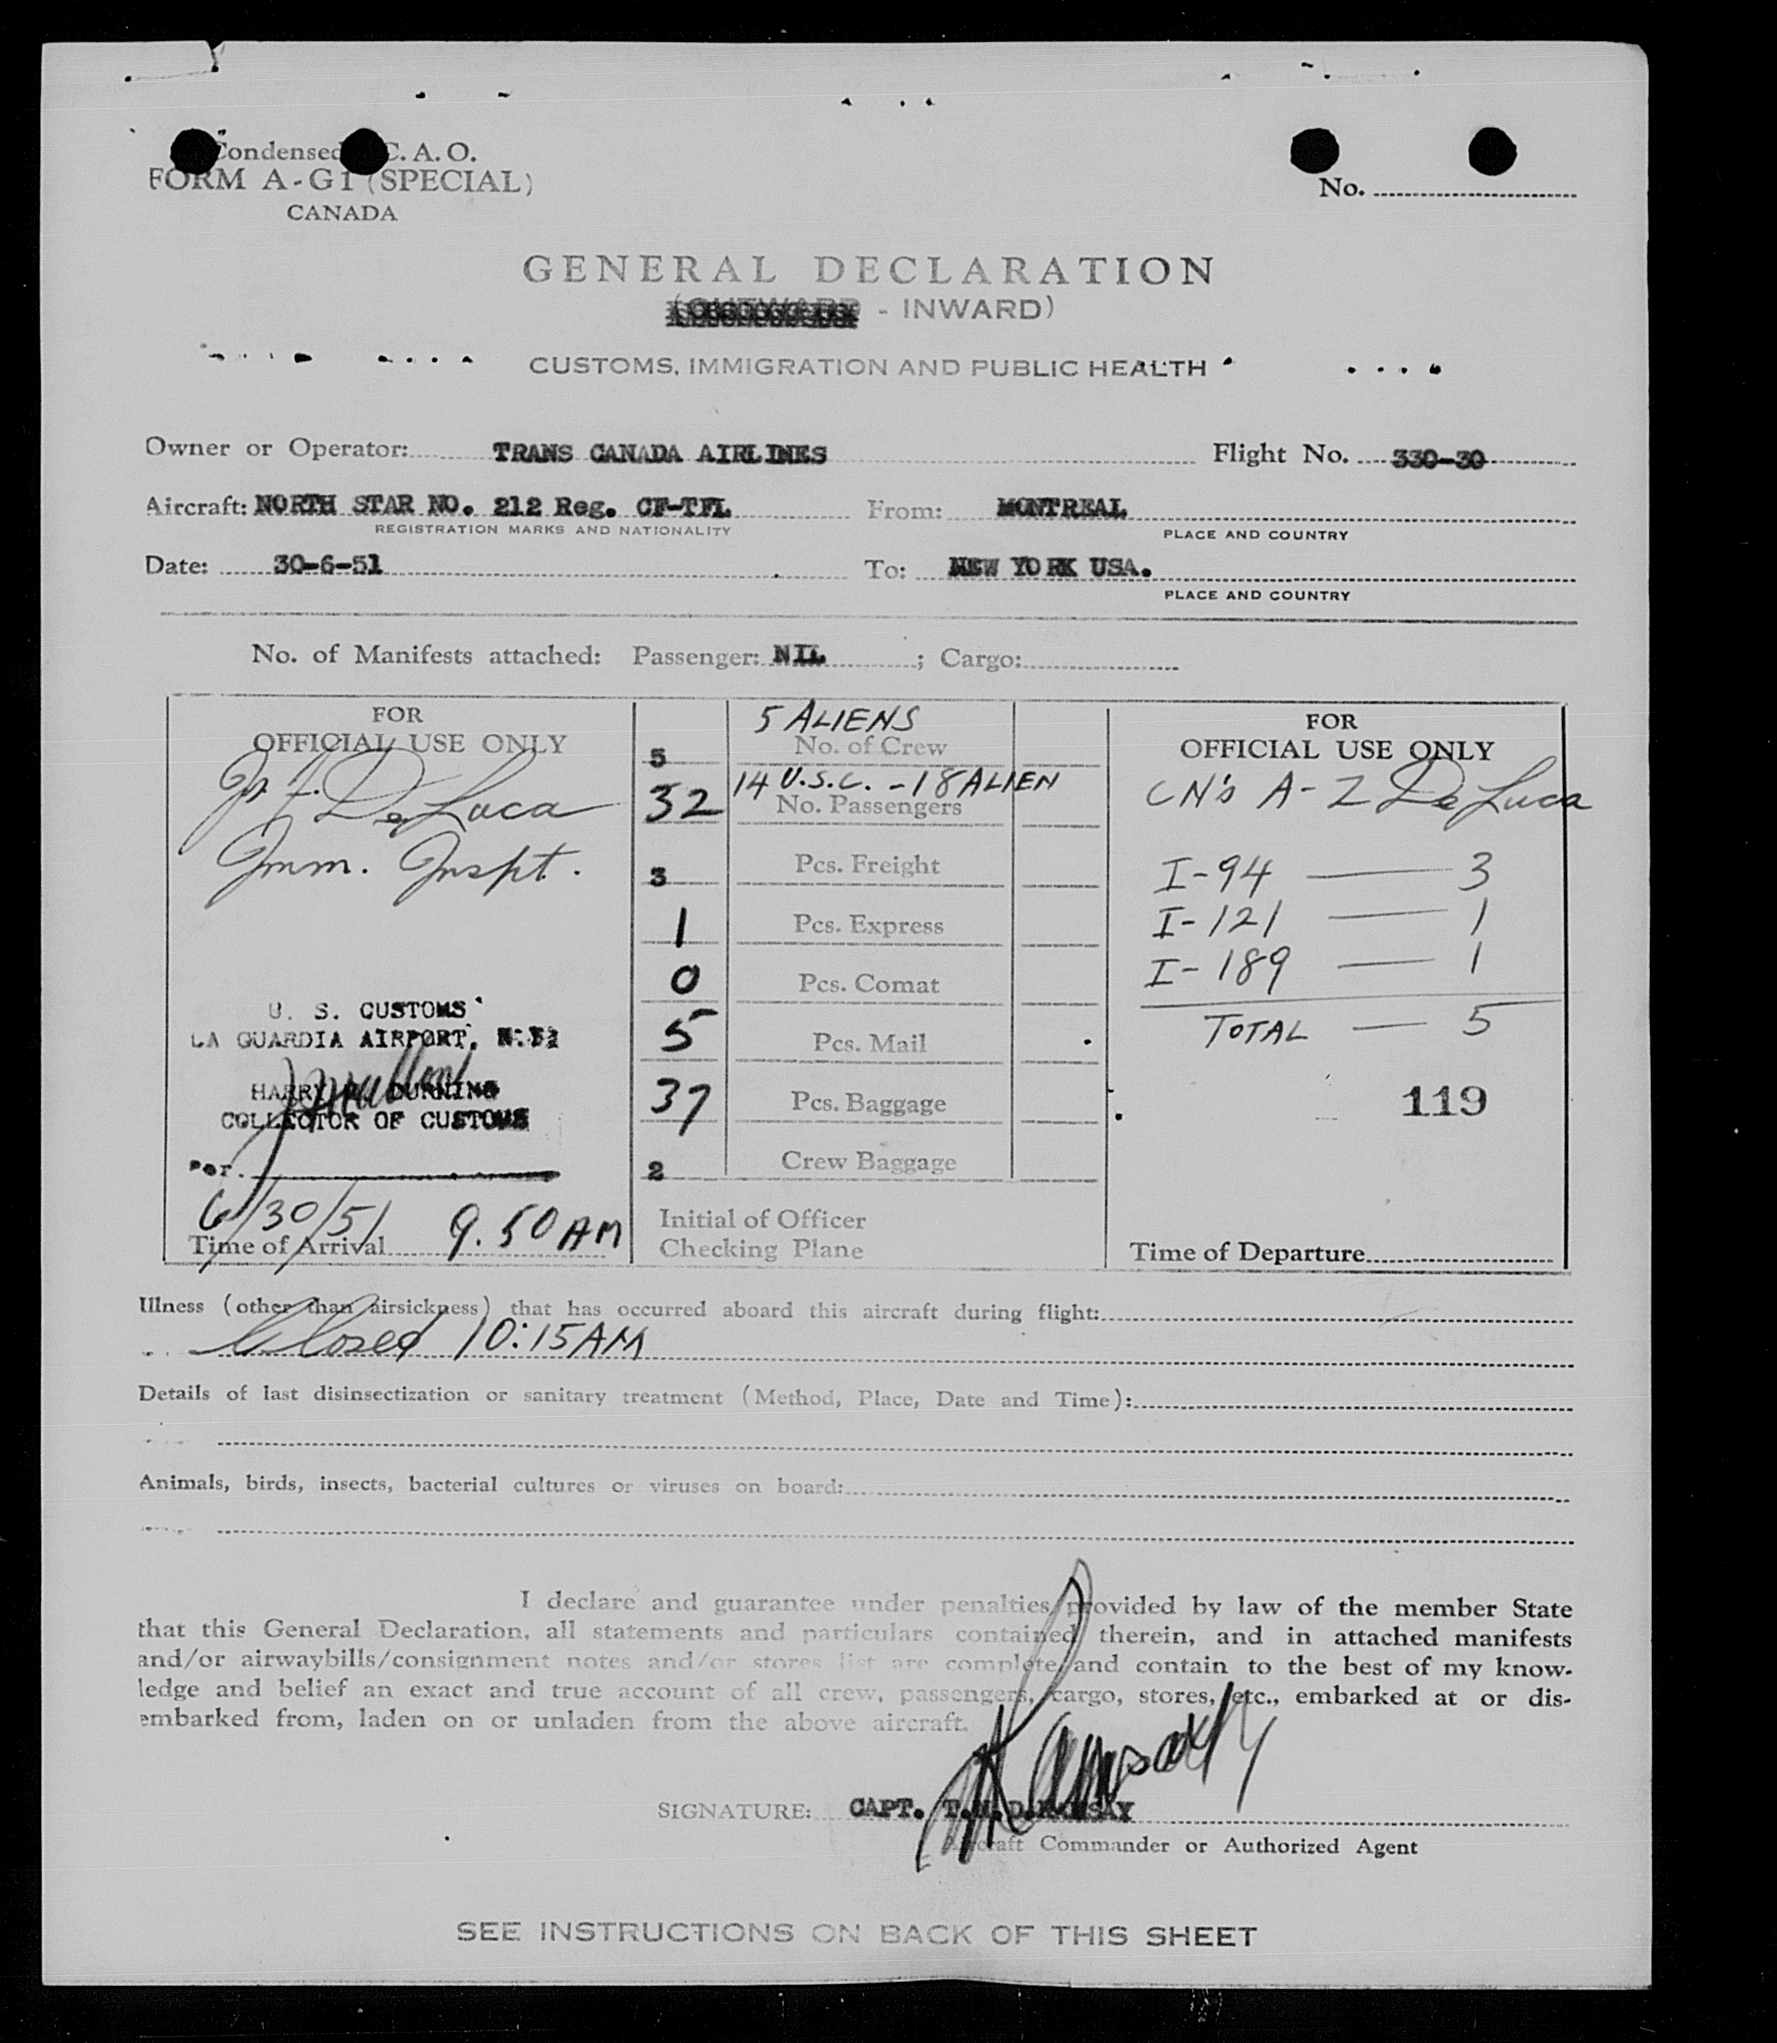 Condensed C. A. O.
FORM A-G1 (SPECIAL)
CANADA
No.
GENERAL DECLARATION
- INWARD)
CUSTOMS, IMMIGRATION AND PUBLIC HEALTH
Owner or Operator: TRANS CANADA AIRLINES Flight No. 330-30
Aircraft: NORTH STAR NO. 212 Reg. CF-TFL From: MONTREAL
REGISTRATION MARKS AND NATIONALITY PLACE AND COUNTRY
Date: 30-6-51 To: NEW YORK USA.
PLACE AND COUNTRY
No. of Manifests attached: Passenger: NIL ; Cargo:
FOR
OFFICIAL USE ONLY
De Luca
Imm. Inspt.
U. S. CUSTOMS
LA GUARDIA AIRPORT, N.Y.
HARRY M. DURNING
COLLECTOR OF CUSTOMS
Per.
6/30/51
Time of Arrival 9.50 AM
5 ALIENS
5 No. of Crew
14 U.S.C. - 18 ALIEN
32 No. Passengers
3 Pcs. Freight
1 Pcs. Express
0 Pcs. Comat
5 Pcs. Mail
37 Pcs. Baggage
2 Crew Baggage
Initial of Officer
Checking Plane
FOR
OFFICIAL USE ONLY
CN's A-Z De Luca
I-94 — 3
I-121 — 1
I-189 — 1
TOTAL — 5
119
Time of Departure
Illness (other than airsickness) that has occurred aboard this aircraft during flight:
Closed 10:15 AM
Details of last disinsectization or sanitary treatment (Method, Place, Date and Time):
Animals, birds, insects, bacterial cultures or viruses on board:
I declare and guarantee under penalties provided by law of the member State
that this General Declaration, all statements and particulars contained therein, and in attached manifests
and/or airwaybills/consignment notes and/or stores list are complete and contain to the best of my know-
ledge and belief an exact and true account of all crew, passengers, cargo, stores, etc., embarked at or dis-
embarked from, laden on or unladen from the above aircraft.
SIGNATURE: CAPT. T. D. RAMSAY
Aircraft Commander or Authorized Agent
SEE INSTRUCTIONS ON BACK OF THIS SHEET